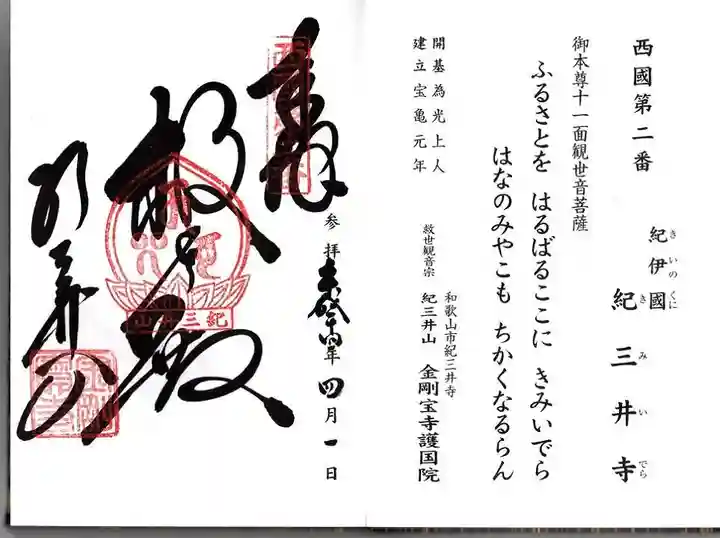 西國第二番
紀伊國 紀三井寺
きいのくに きみいでら
御本尊十一面観世音菩薩
ふるさとを はるばるここに きみいでら
はなのみやこも ちかくなるらん
開基為光上人
建立宝亀元年
和歌山市紀三井寺
救世観音宗 紀三井山 金剛宝寺護国院
奉拝
参拝 平成二十四年四月一日
救世殿
紀三井寺
山井三紀